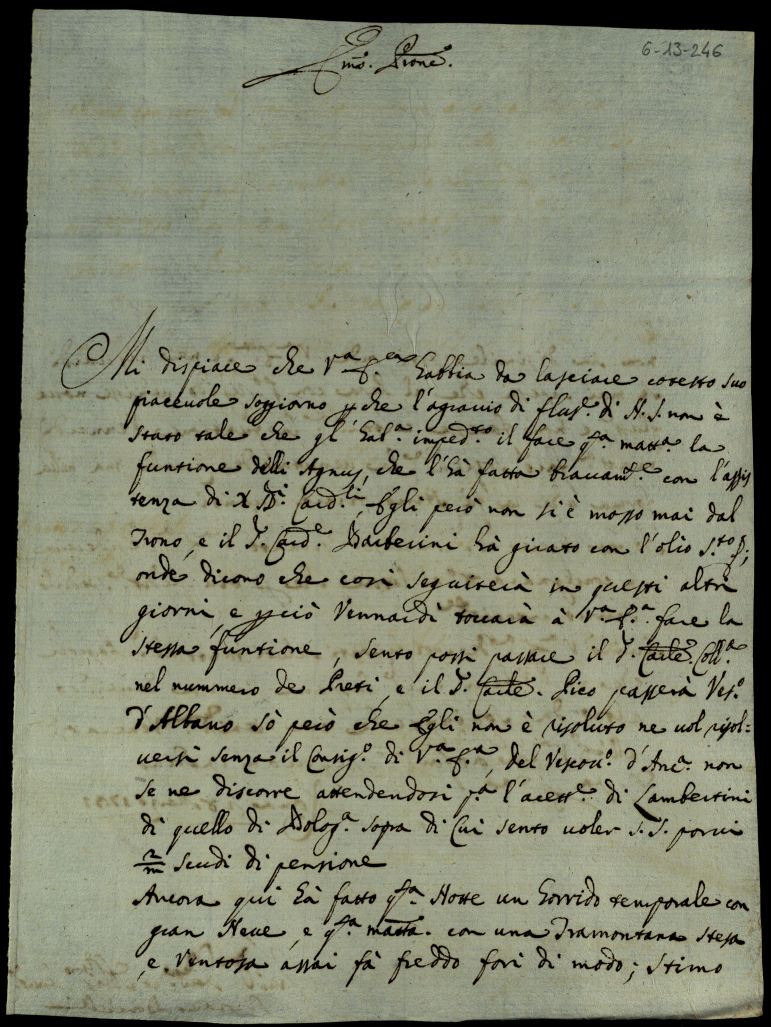 6-13-246
Emo. Prone.
Mi dispiace che Va. Ea. habbia da lasciare cotesto suo
piaceuole soggiorno p che l'agrauio di flus.e di N. S. non è
stato tale che gl'hab.a imped.to il fare q.a matt.a la
funtione delli Agnus, che l'hà fatta brauam.te con l'assis
tenza di X SS.i Card.li, Egli però non si è mosso mai dal
Trono, e il S. Card.e Barberini hà girato con l'olio S.to
onde dicono che così seguiterà in questi altri
giorni, e p ciò Vennardì toccarà à V.a E.a fare la
stessa funtione, sento possi passare il S. Carle. Coll.a
nel nummero de Preti, e il S. Carle. Pico passerà Ves.o
d'Albano sò però che Egli non è risoluto ne uol risol=
uersi senza il Consig.o di V.a E.a, del Vescou.o d'Anc.a non
se ne discorre attendendosi p.a l'acett.e di Lambertini
di quello di Bolog.a sopra di Cui sento uoler S. S. porui
2/m scudi di pensione
Ancora qui hà fatto q.sta Notte un horrido temporale con
gran Neue, e q.sta matta. con una Tramontana stesa
e Ventosa assai fà freddo fori di modo; stimo